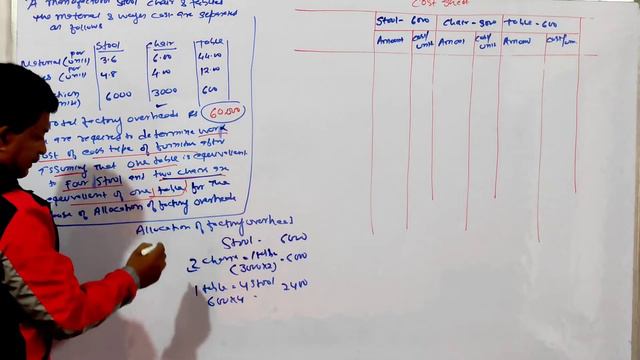 A manufactures Stool Chair & tables
The Material & wages Cost are separated
as follows
Stool Chair Table
Material (per unit) 3.6 6.00 44.00
(per unit) 4.8 4.00 12.00
6000 3000 600
Total factory overheads Rs 60,000
are required to determine work
Cost of each type of furniture after
Assuming that one table is equivalent
to four Stool and two chairs are
equivalent of one table for the
of Allocation of factory overheads
Allocation of factory overheads
Stool - 6000
2 chair = 1 table
(3000x2) = 6000
1 table = 4 Stool
600x4 - 2400
Cost Sheet
Stool - 6000 Chair - 3000 table - 600
Amount Cost/unit Amount Cost/unit Amount Cost/unit